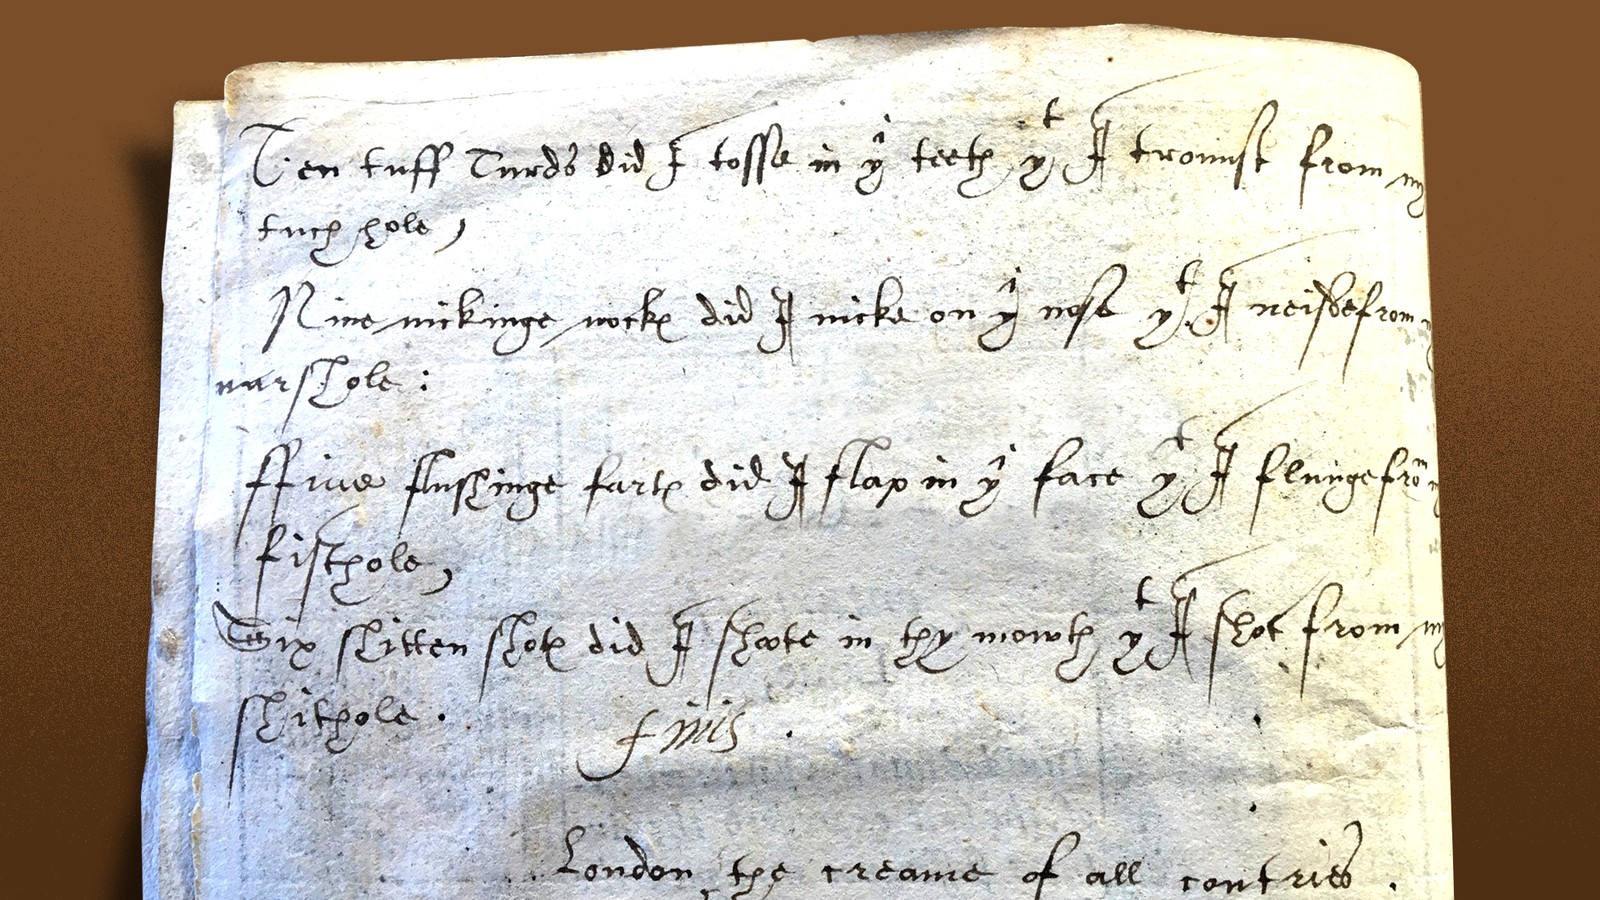 Ten tuff Turds did I tosse in yͥ teeth yͭ I trounst from my
tuchhole,
Nine nickinge nockꝭ did I nicke on yͥ nose yͭ I neisde from
narshole :
ffive flushinge fartꝭ did I flap in yͥ face yͭ I flunge frō
fisthole,
Six shitten shotꝭ did I shoote in thy mowth yͭ I shot from my
shithole .
finis .
London the creame of all contries .